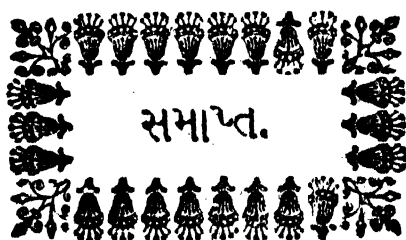 સમાપ્ત.